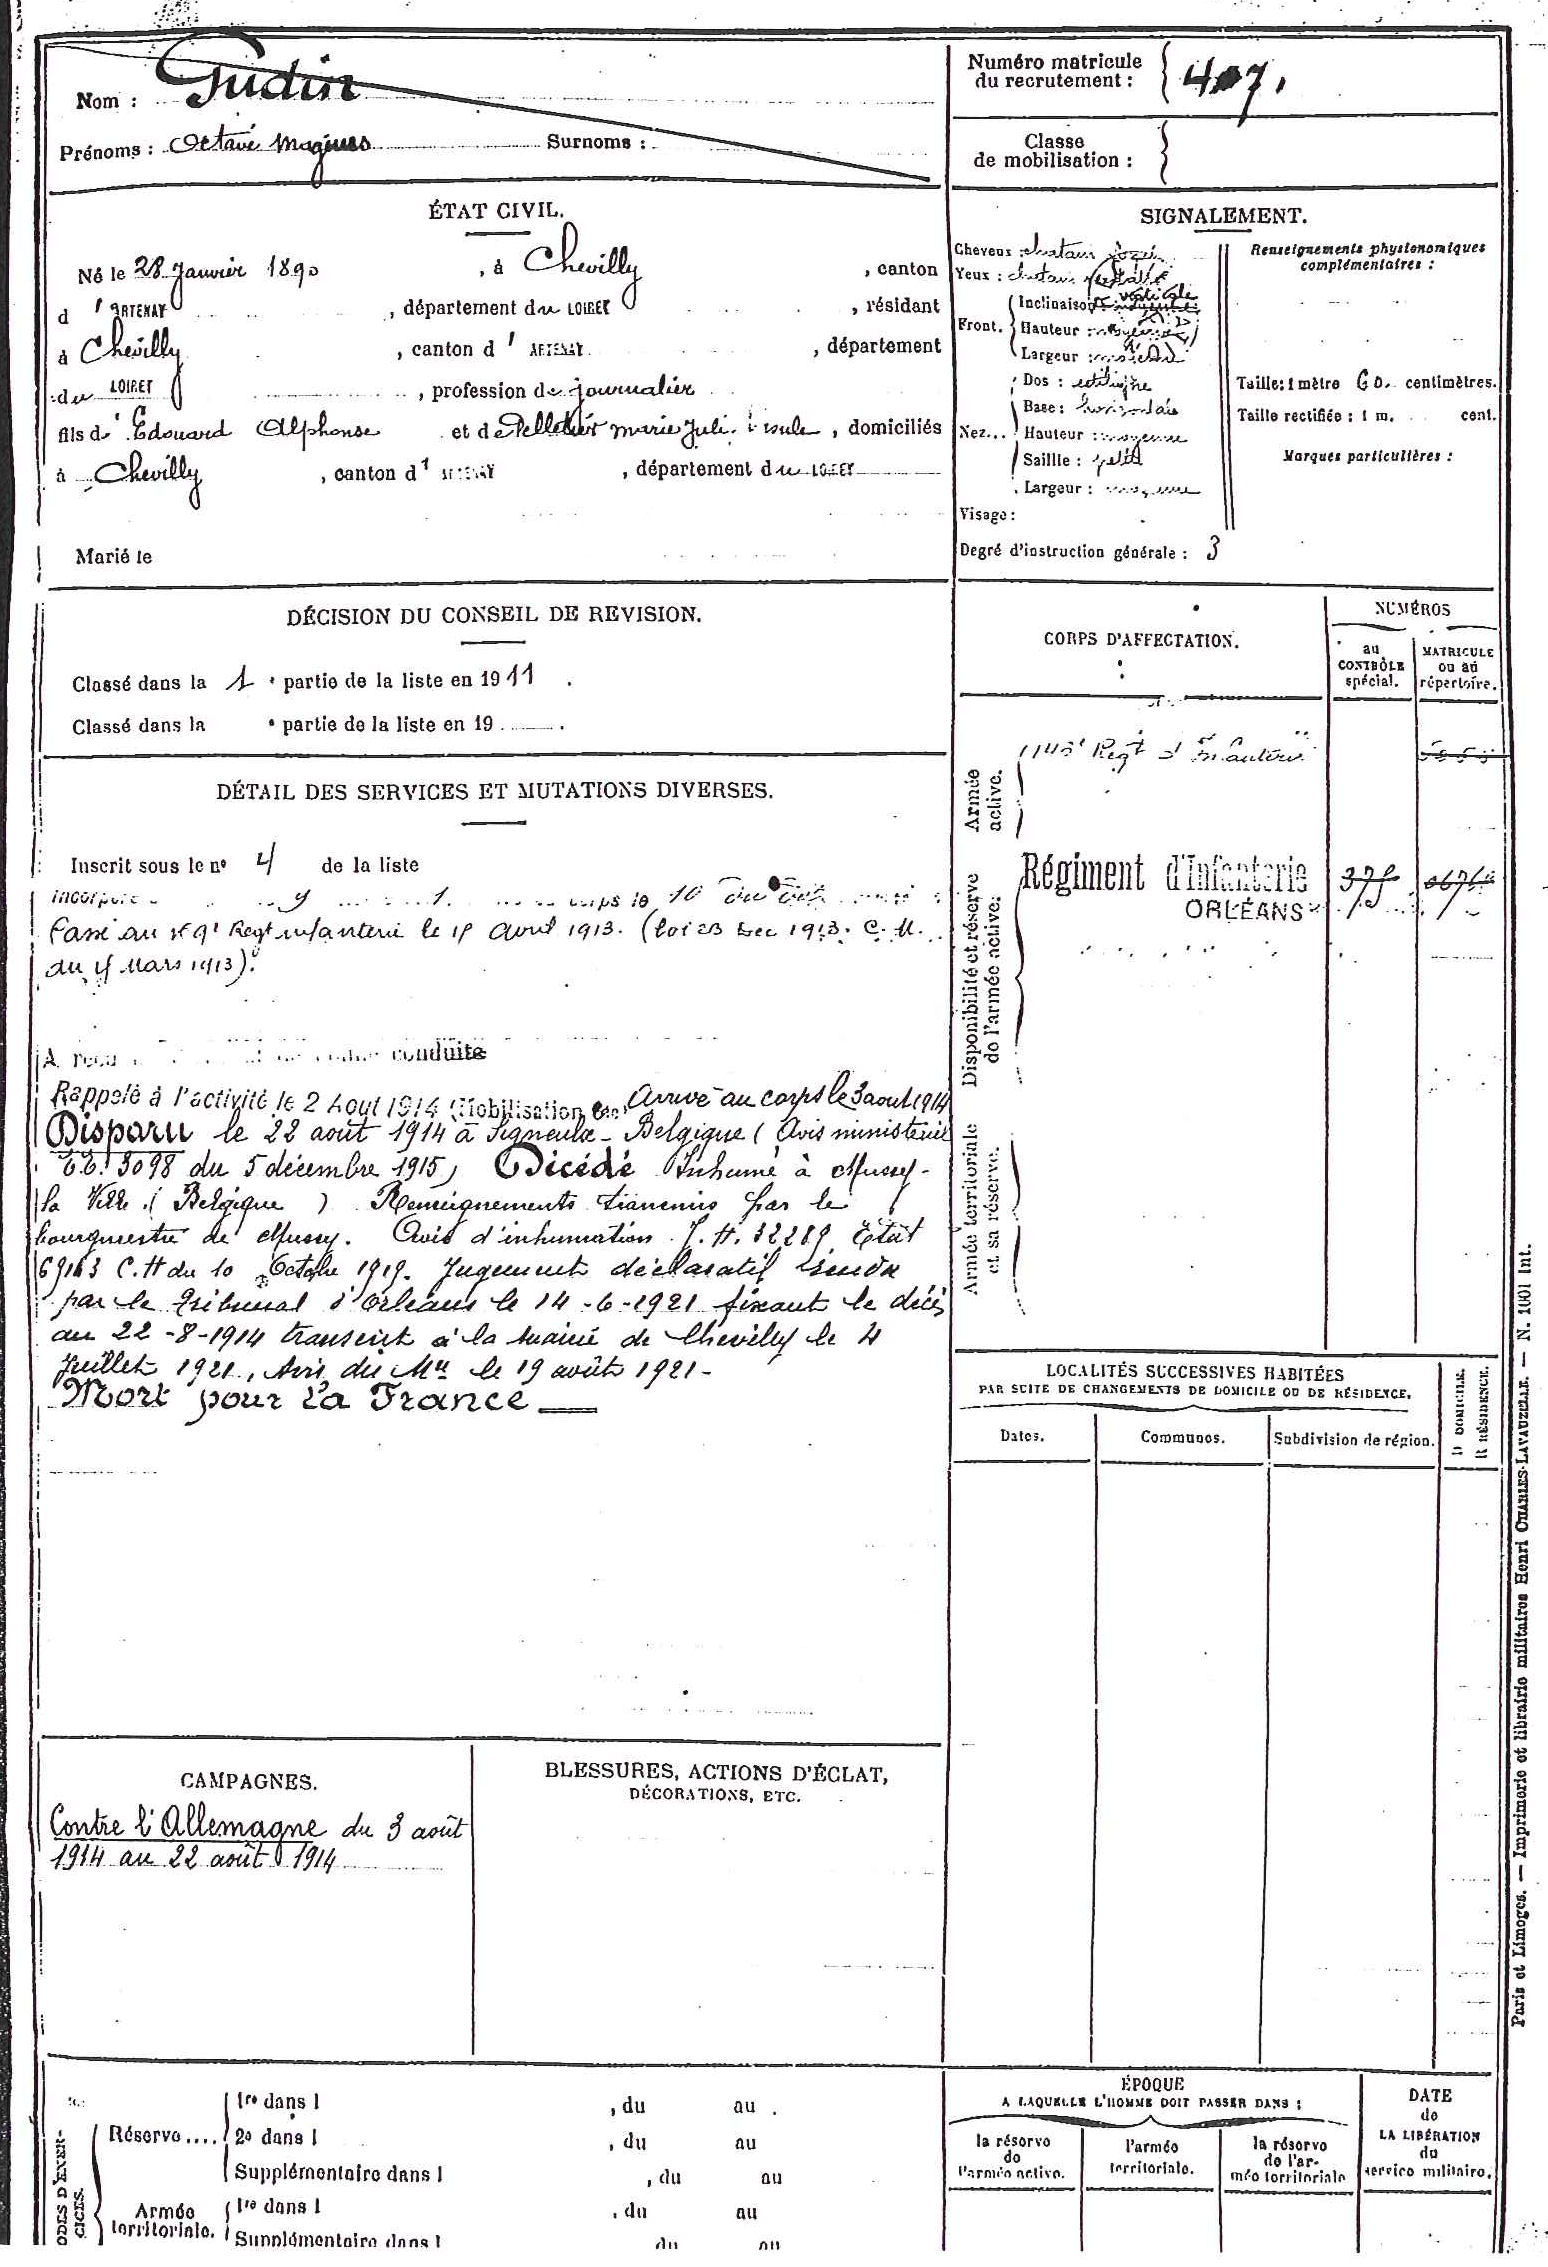 Nom : Gudin
Prénoms : Octave Magnus Surnoms :
Numéro matricule
du recrutement : 407.
Classe
de mobilisation :
ÉTAT CIVIL.
Né le 28 Janvier 1890, à Chevilly, canton
d'ARTENAY, département du LOIRET, résidant
à Chevilly, canton d'ARTENAY, département
du LOIRET, profession de journalier
fils d'Edouard Alphonse et de Pelletier Marie, domiciliés
à Chevilly, canton d'ARTENAY, département du LOIRET
Marié le
SIGNALEMENT.
Cheveux : chatain
Yeux : chatain
Front. Inclinaison verticale
Hauteur : moyenne
Largeur :
Nez... Dos : rectiligne
Base : horizontale
Hauteur : moyenne
Saillie : petite
Largeur : moyenne
Visage :
Degré d'instruction générale : 3
Renseignements physionomiques
complémentaires :
Taille : 1 mètre 60. centimètres.
Taille rectifiée : 1 m. cent.
Marques particulières :
DÉCISION DU CONSEIL DE REVISION.
Classé dans la 1e partie de la liste en 1911.
Classé dans la e partie de la liste en 19 .
DÉTAIL DES SERVICES ET MUTATIONS DIVERSES.
Inscrit sous le no 4 de la liste
Incorporé corps le 10
Passé au Regt infanterie le 15 Avril 1913. (Loi Dec 1913. C. M.
du Mars 1913).
A reçu conduite
Rappelé à l'activité le 2 Aout 1914 (Mobilisation Gle) Arrivé au corps le 3 aout 1914
Disparu le 22 août 1914 à Signeulx - Belgique (Avis ministériel
3098 du 5 décembre 1915) Décédé Inhumé à Mussy-
la Ville (Belgique) Renseignements transmis par le
bourgmestre de Mussy. Avis d'inhumation Etat
C.H du 10 Octobre 1919. Jugement déclaratif rendu
par le tribunal d'Orléans le 14-6-1921 fixant le décès
au 22-8-1914 transcrit à la mairie de Chevilly le 4
Juillet 1921, Avis du Mre le 19 août 1921-
Mort pour la France
CORPS D'AFFECTATION.
NUMÉROS
au
CONTRÔLE
spécial.
MATRICULE
ou au
répertoire.
Armée
active.
Regt d'Infanterie
Disponibilité et réserve
de l'armée active.
Régiment d'Infanterie
ORLÉANS
375
Armée territoriale
et sa réserve.
LOCALITÉS SUCCESSIVES HABITÉES
PAR SUITE DE CHANGEMENTS DE DOMICILE OU DE RÉSIDENCE.
Dates. Communes. Subdivision de région.
D DOMICILE.
R RÉSIDENCE.
CAMPAGNES.
Contre l'Allemagne du 3 août
1914 au 22 août 1914
BLESSURES, ACTIONS D'ÉCLAT,
DÉCORATIONS, ETC.
ODES D'EXER-
CICES.
Réserve.... 1re dans l , du au .
2e dans l , du au
Supplémentaire dans l , du au
Armée
territoriale. 1re dans l , du au
Supplémentaire dans l du au
ÉPOQUE
A LAQUELLE L'HOMME DOIT PASSER DANS :
la réserve
de
l'armée active.
l'armée
territoriale.
la réserve
de l'ar-
mée territoriale
DATE
de
LA LIBÉRATION
du
service militaire.
Paris et Limoges. — Imprimerie et librairie militaires Henri CHARLES-LAVAUZELLE. — N. 1001 Int.